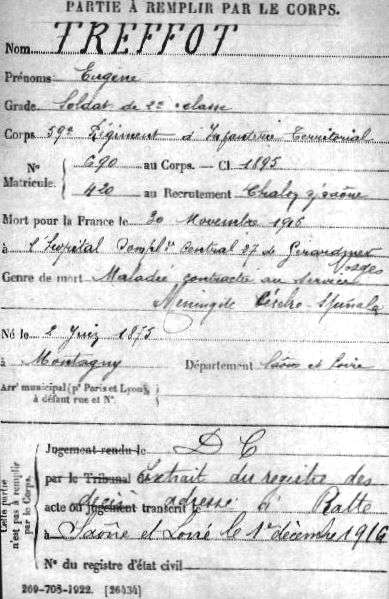 PARTIE À REMPLIR PAR LE CORPS.
Nom TREFFOT
Prénoms Eugène
Grade Soldat de 2e classe
Corps 59e Régiment d'Infanterie Territorial
N° Matricule. { 690 au Corps. — Cl. 1895
420 au Recrutement Chalon s/saône
Mort pour la France le 30 Novembre 1916
à l'Hopital Central 37 de Gérardmer
Vosges
Genre de mort Maladie contractée au service
Méningite Cérébro-Spinale
Né le 2 Juin 1875
à Montagny Département Saône et Loire
Arrt municipal (pr Paris et Lyon),
à défaut rue et N°.
Cette partie n'est pas à remplir par le Corps.
Jugement rendu le D C
par le Tribunal de Extrait du registre des
acte ou jugement transcrit le décès adressé à Ratte
à Saône et Loire le 1er décembre 1916
N° du registre d'état civil
269-708-1922. [26434]